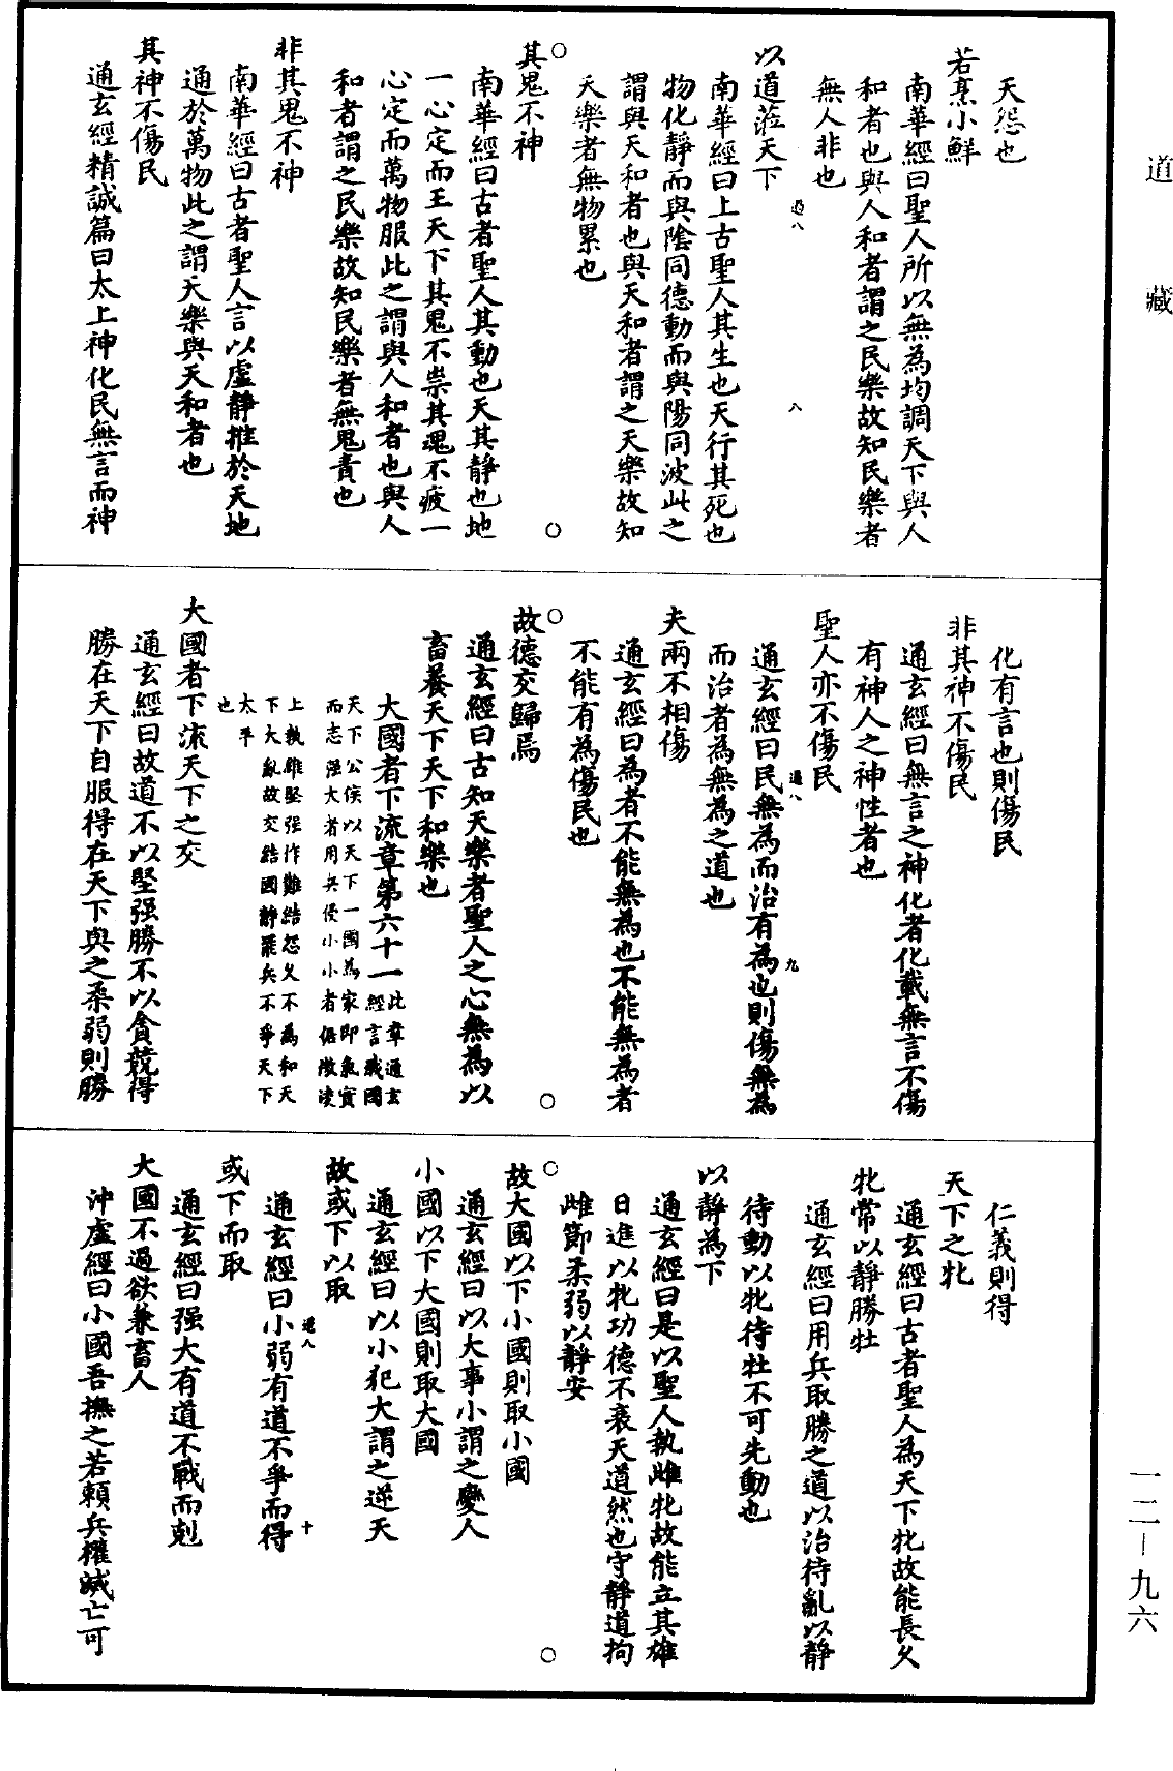 道藏
天怨也
若烹小鮮
南華經曰聖人所以無為均調天下與人
和者也與人和者謂之民樂故知民樂者
無人非也
以道蒞天下
道八
八
南華經曰上古聖人其生也天行其死也
物化靜而與陰同德動而與陽同波此之
謂與天和者也與天和者謂之天樂故知
天樂者無物累也
其鬼不神
南華經曰古者聖人其動也天其靜也地
一心定而王天下其鬼不祟其魂不疲一
心定而萬物服此之謂與人和者也與人
和者謂之民樂故知民樂者無鬼責也
非其鬼不神
南華經曰古者聖人言以虛靜推於天地
通於萬物此之謂天樂與天和者也
其神不傷民
通玄經精誠篇曰太上神化民無言而神
化有言也則傷民
非其神不傷民
通玄經曰無言之神化者化載無言不傷
有神人之神性者也
聖人亦不傷民
通玄經曰民無為而治有為也則傷無為
道八
九
而治者為無為之道也
夫兩不相傷
通玄經曰為者不能無為也不能無為者
不能有為傷民也
故德交歸焉
通玄經曰古知天樂者聖人之心無為以
畜養天下天下和樂也
大國者下流章第六十一
此章通玄
經言戰國
天下公侯以天下一國為家即氣實
而志强大者用兵侵小小者倨傲凌
上執雖堅强作難結怨久不為和天
下大亂故交結國靜罷兵不爭天下
太平
也
大國者下流天下之交
通玄經曰故道不以堅强勝不以貪競得
勝在天下自服得在天下與之柔弱則勝
仁義則得
天下之牝
通玄經曰古者聖人為天下牝故能長久
牝常以靜勝牡
通玄經曰用兵取勝之道以治待亂以靜
待動以牝待牡不可先動也
以靜為下
通玄經曰是以聖人執雌牝故能立其雄
日進以牝功德不衰天道然也守靜道拘
雌節柔弱以靜安
故大國以下小國則取小國
通玄經曰以大事小謂之變人
小國以下大國則取大國
通玄經曰以小犯大謂之逆天
故或下以取
通玄經曰小弱有道不爭而得
道八
十
或下而取
通玄經曰强大有道不戰而剋
大國不過欲兼畜人
沖虛經曰小國吾撫之若賴兵權滅亡可
一二—九六